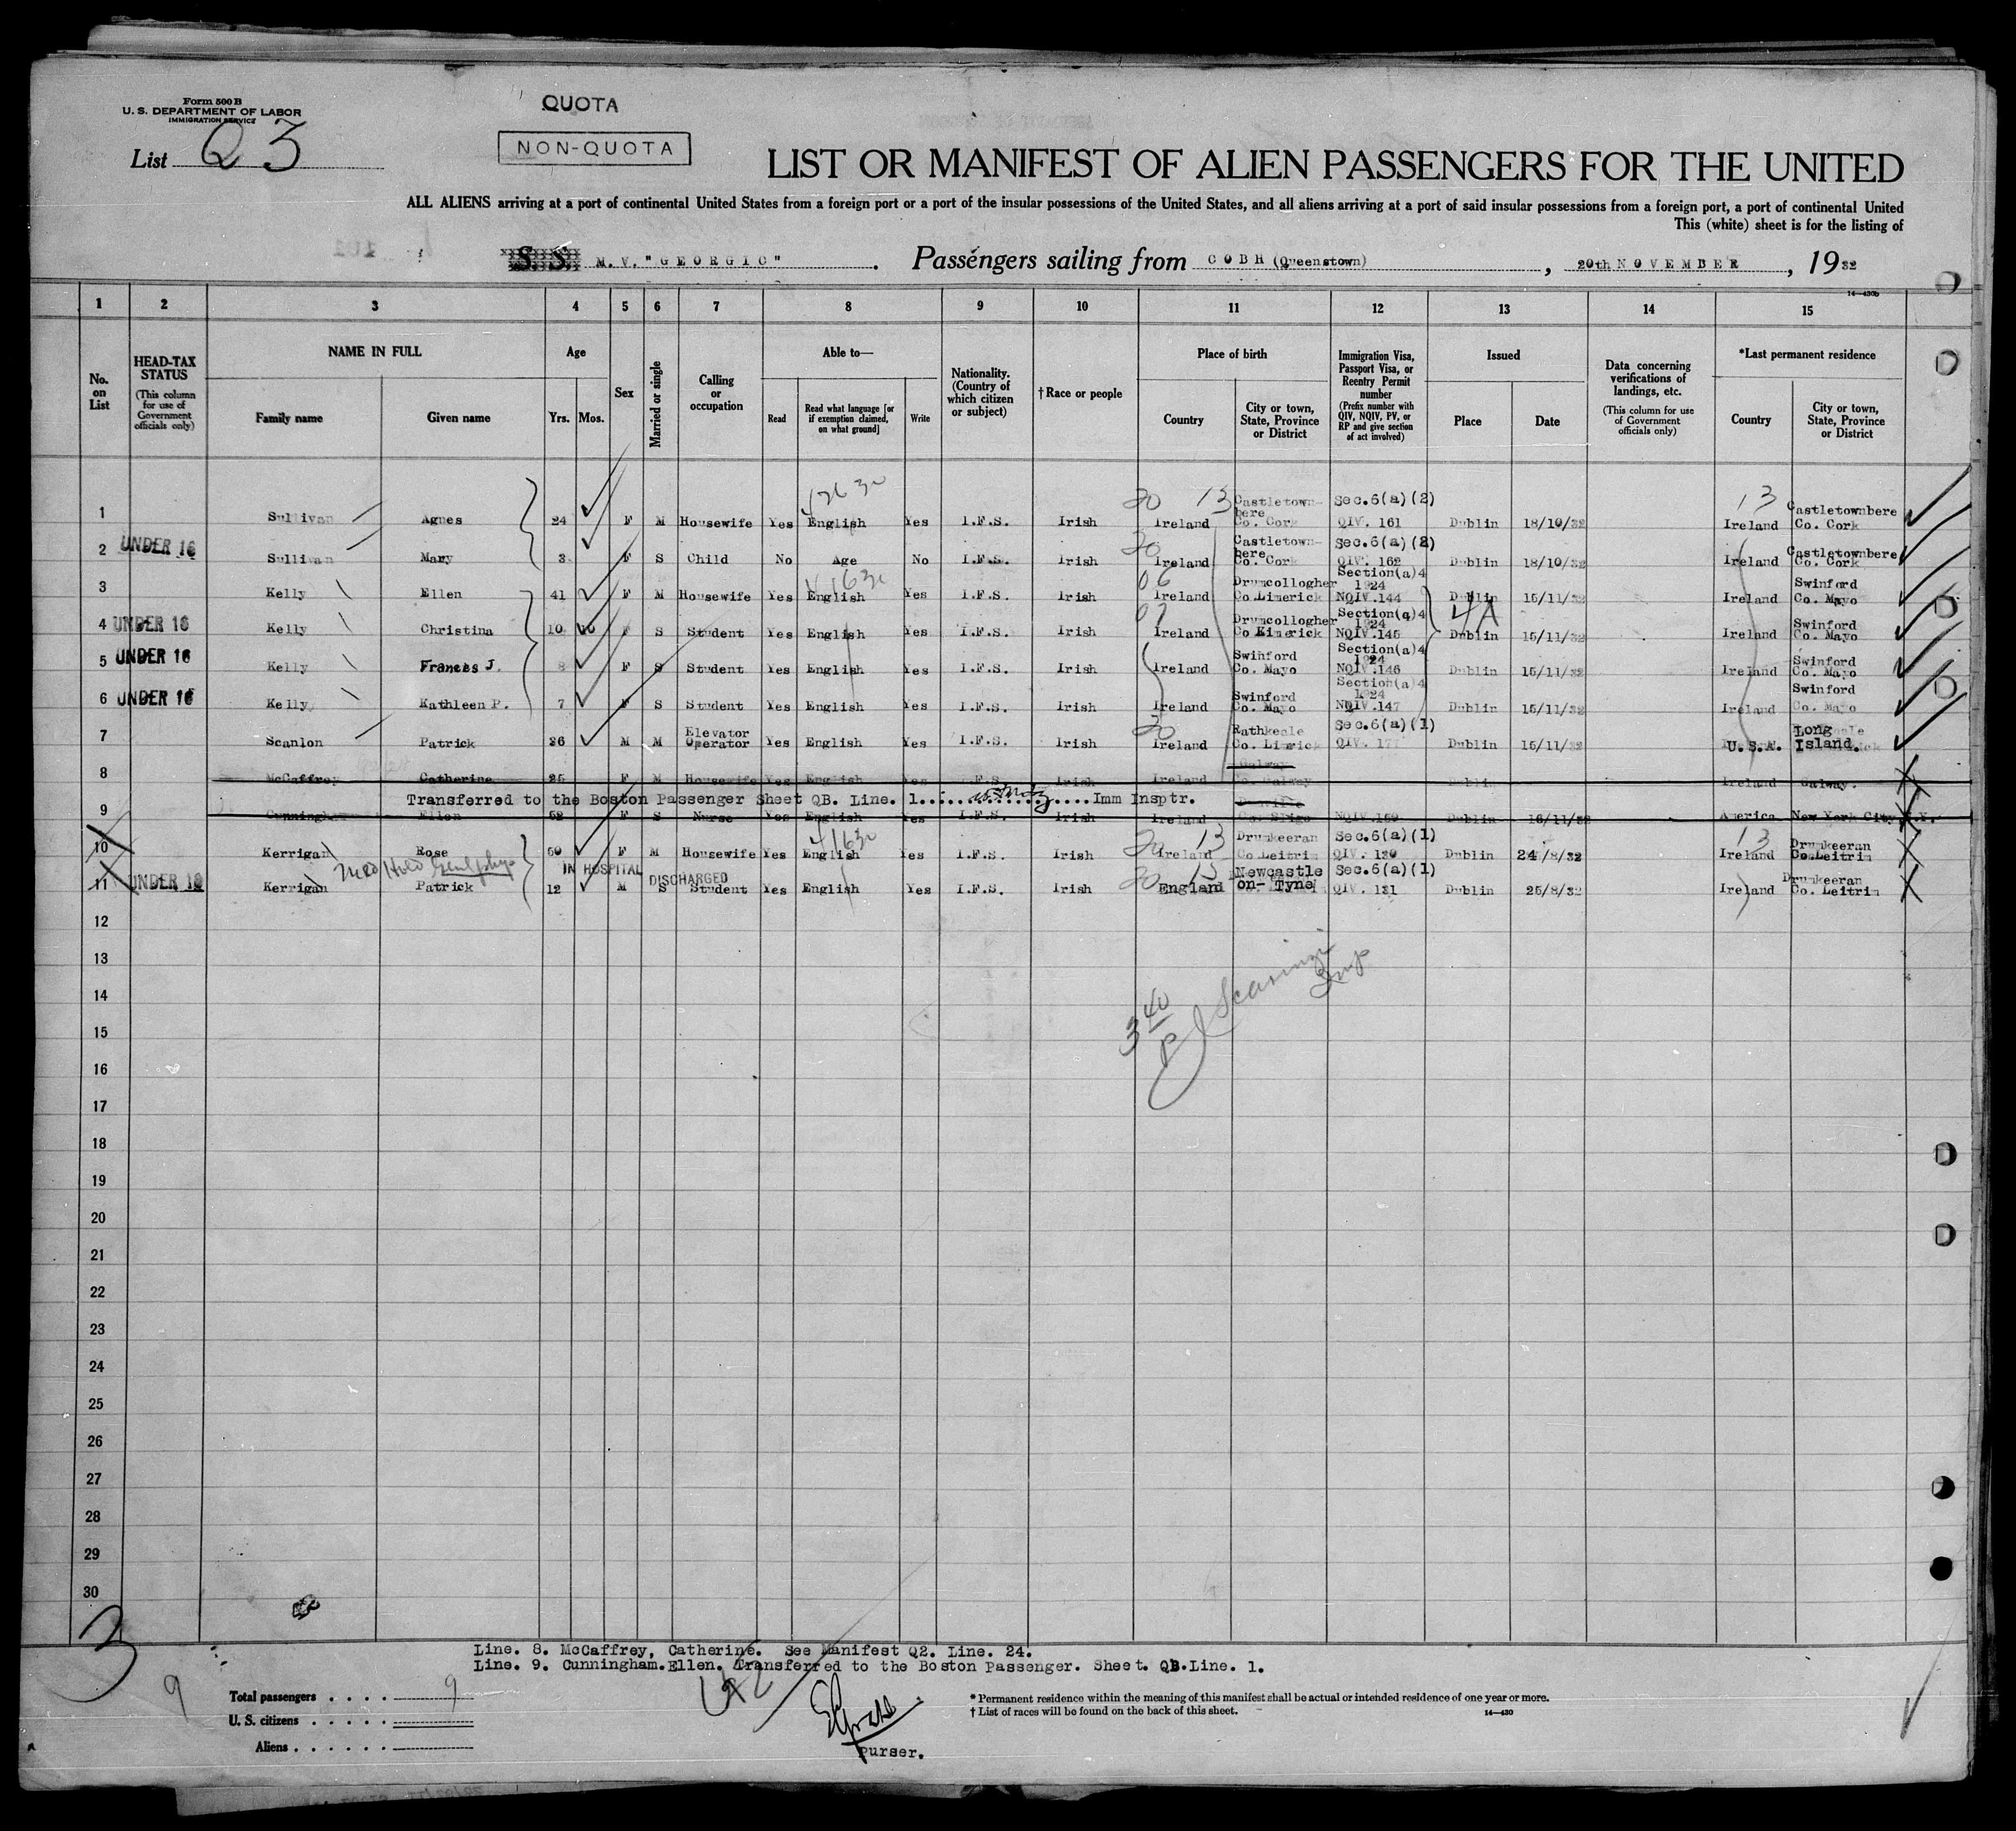 Form 500 B
U. S. DEPARTMENT OF LABOR
IMMIGRATION SERVICE
List Q3
QUOTA
NON-QUOTA
LIST OR MANIFEST OF ALIEN PASSENGERS FOR THE UNITED
ALL ALIENS arriving at a port of continental United States from a foreign port or a port of the insular possessions of the United States, and all aliens arriving at a port of said insular possessions from a foreign port, a port of continental United
This (white) sheet is for the listing of
S. S. M.V."GEORGIC" . Passengers sailing from COBH (Queenstown) , 20th NOVEMBER , 1932
14—430b
1 2 3 4 5 6 7 8 9 10 11 12 13 14 15
No. on List
HEAD-TAX STATUS (This column for use of Government officials only)
NAME IN FULL Family name Given name
Age Yrs. Mos.
Sex
Married or single
Calling or occupation
Able to— Read Read what language [or if exemption claimed, on what ground] Write
Nationality. (Country of which citizen or subject)
† Race or people
Place of birth Country City or town, State, Province or District
Immigration Visa, Passport Visa, or Reentry Permit number (Prefix number with QIV, NQIV, PV, or RP and give section of act involved)
Issued Place Date
Data concerning verifications of landings, etc. (This column for use of Government officials only)
*Last permanent residence Country City or town, State, Province or District
1 Sullivan Agnes 24 F M Housewife Yes English Yes I.F.S. Irish 20 13 Ireland Castletown-bere Co. Cork Sec.6(a)(2) QIV. 161 Dublin 18/10/32 13 Ireland Castletownbere Co. Cork
2 UNDER 16 Sullivan Mary 3 F S Child No Age No I.F.S. Irish 20 Ireland Castletown-bere Co. Cork Sec.6(a)(2) QIV. 162 Dublin 18/10/32 Ireland Castletownbere Co. Cork
3 Kelly Ellen 41 F M Housewife Yes English Yes I.F.S. Irish 06 Ireland Drumcollogher Co.Limerick Section(a)4 1924 NQIV.144 Dublin 15/11/32 Ireland Swinford Co. Mayo
4 UNDER 16 Kelly Christina 10 10 F S Student Yes English Yes I.F.S. Irish 07 Ireland Drumcollogher Co Limerick Section(a)4 1924 NQIV.145 4A Dublin 15/11/32 Ireland Swinford Co. Mayo
5 UNDER 16 Kelly Frances J. 8 F S Student Yes English Yes I.F.S. Irish Ireland Swinford Co. Mayo Section(a)4 1924 NQIV.146 Dublin 15/11/32 Ireland Swinford Co. Mayo
6 UNDER 16 Kelly Kathleen P. 7 F S Student Yes English Yes I.F.S. Irish Ireland Swinford Co. Mayo Section(a)4 1924 NQIV.147 Dublin 15/11/32 Ireland Swinford Co. Mayo
7 Scanlon Patrick 26 M M Elevator Operator Yes English Yes I.F.S. Irish 20 Ireland Rathkeale Co. Limerick Sec.6(a)(1) QIV. 177 Dublin 15/11/32 U.S.A. Long Island.
8 McCaffrey Catherine 25 F M Housewife Yes English Yes I.F.S. Irish Ireland Galway Co. Galway Dublin Ireland Galway.
Transferred to the Boston Passenger Sheet QB. Line. 1. Imm Insptr.
9 Cunningham Ellen 52 F S Nurse Yes English Yes I.F.S. Irish Ireland Co. Sligo NQIV.159 Dublin 16/11/32 America New York City, N.Y.
10 Kerrigan Rose 50 F M Housewife Yes English Yes I.F.S. Irish 20 13 Ireland Drumkeeran Co Leitrim Sec.6(a)(1) QIV. 130 Dublin 24/8/32 13 Ireland Drumkeeran Co. Leitrim
IN HOSPITAL DISCHARGED
11 UNDER 16 Kerrigan Patrick 12 M S Student Yes English Yes I.F.S. Irish 20 England Newcastle on-Tyne Sec.6(a)(1) QIV. 131 Dublin 25/8/32 Ireland Drumkeeran Co. Leitrim
12
13
14
15
3 40
16
17
18
19
20
21
22
23
24
25
26
27
28
29
30
3
Line. 8. McCaffrey, Catherine. See Manifest Q2. Line. 24.
Line. 9. Cunningham.Ellen. Transferred to the Boston Passenger. Sheet. QB.Line. 1.
9
Total passengers . . . . 9
U. S. citizens . . . . .
Aliens . . . . . .
Purser.
* Permanent residence within the meaning of this manifest shall be actual or intended residence of one year or more.
† List of races will be found on the back of this sheet.
14—430